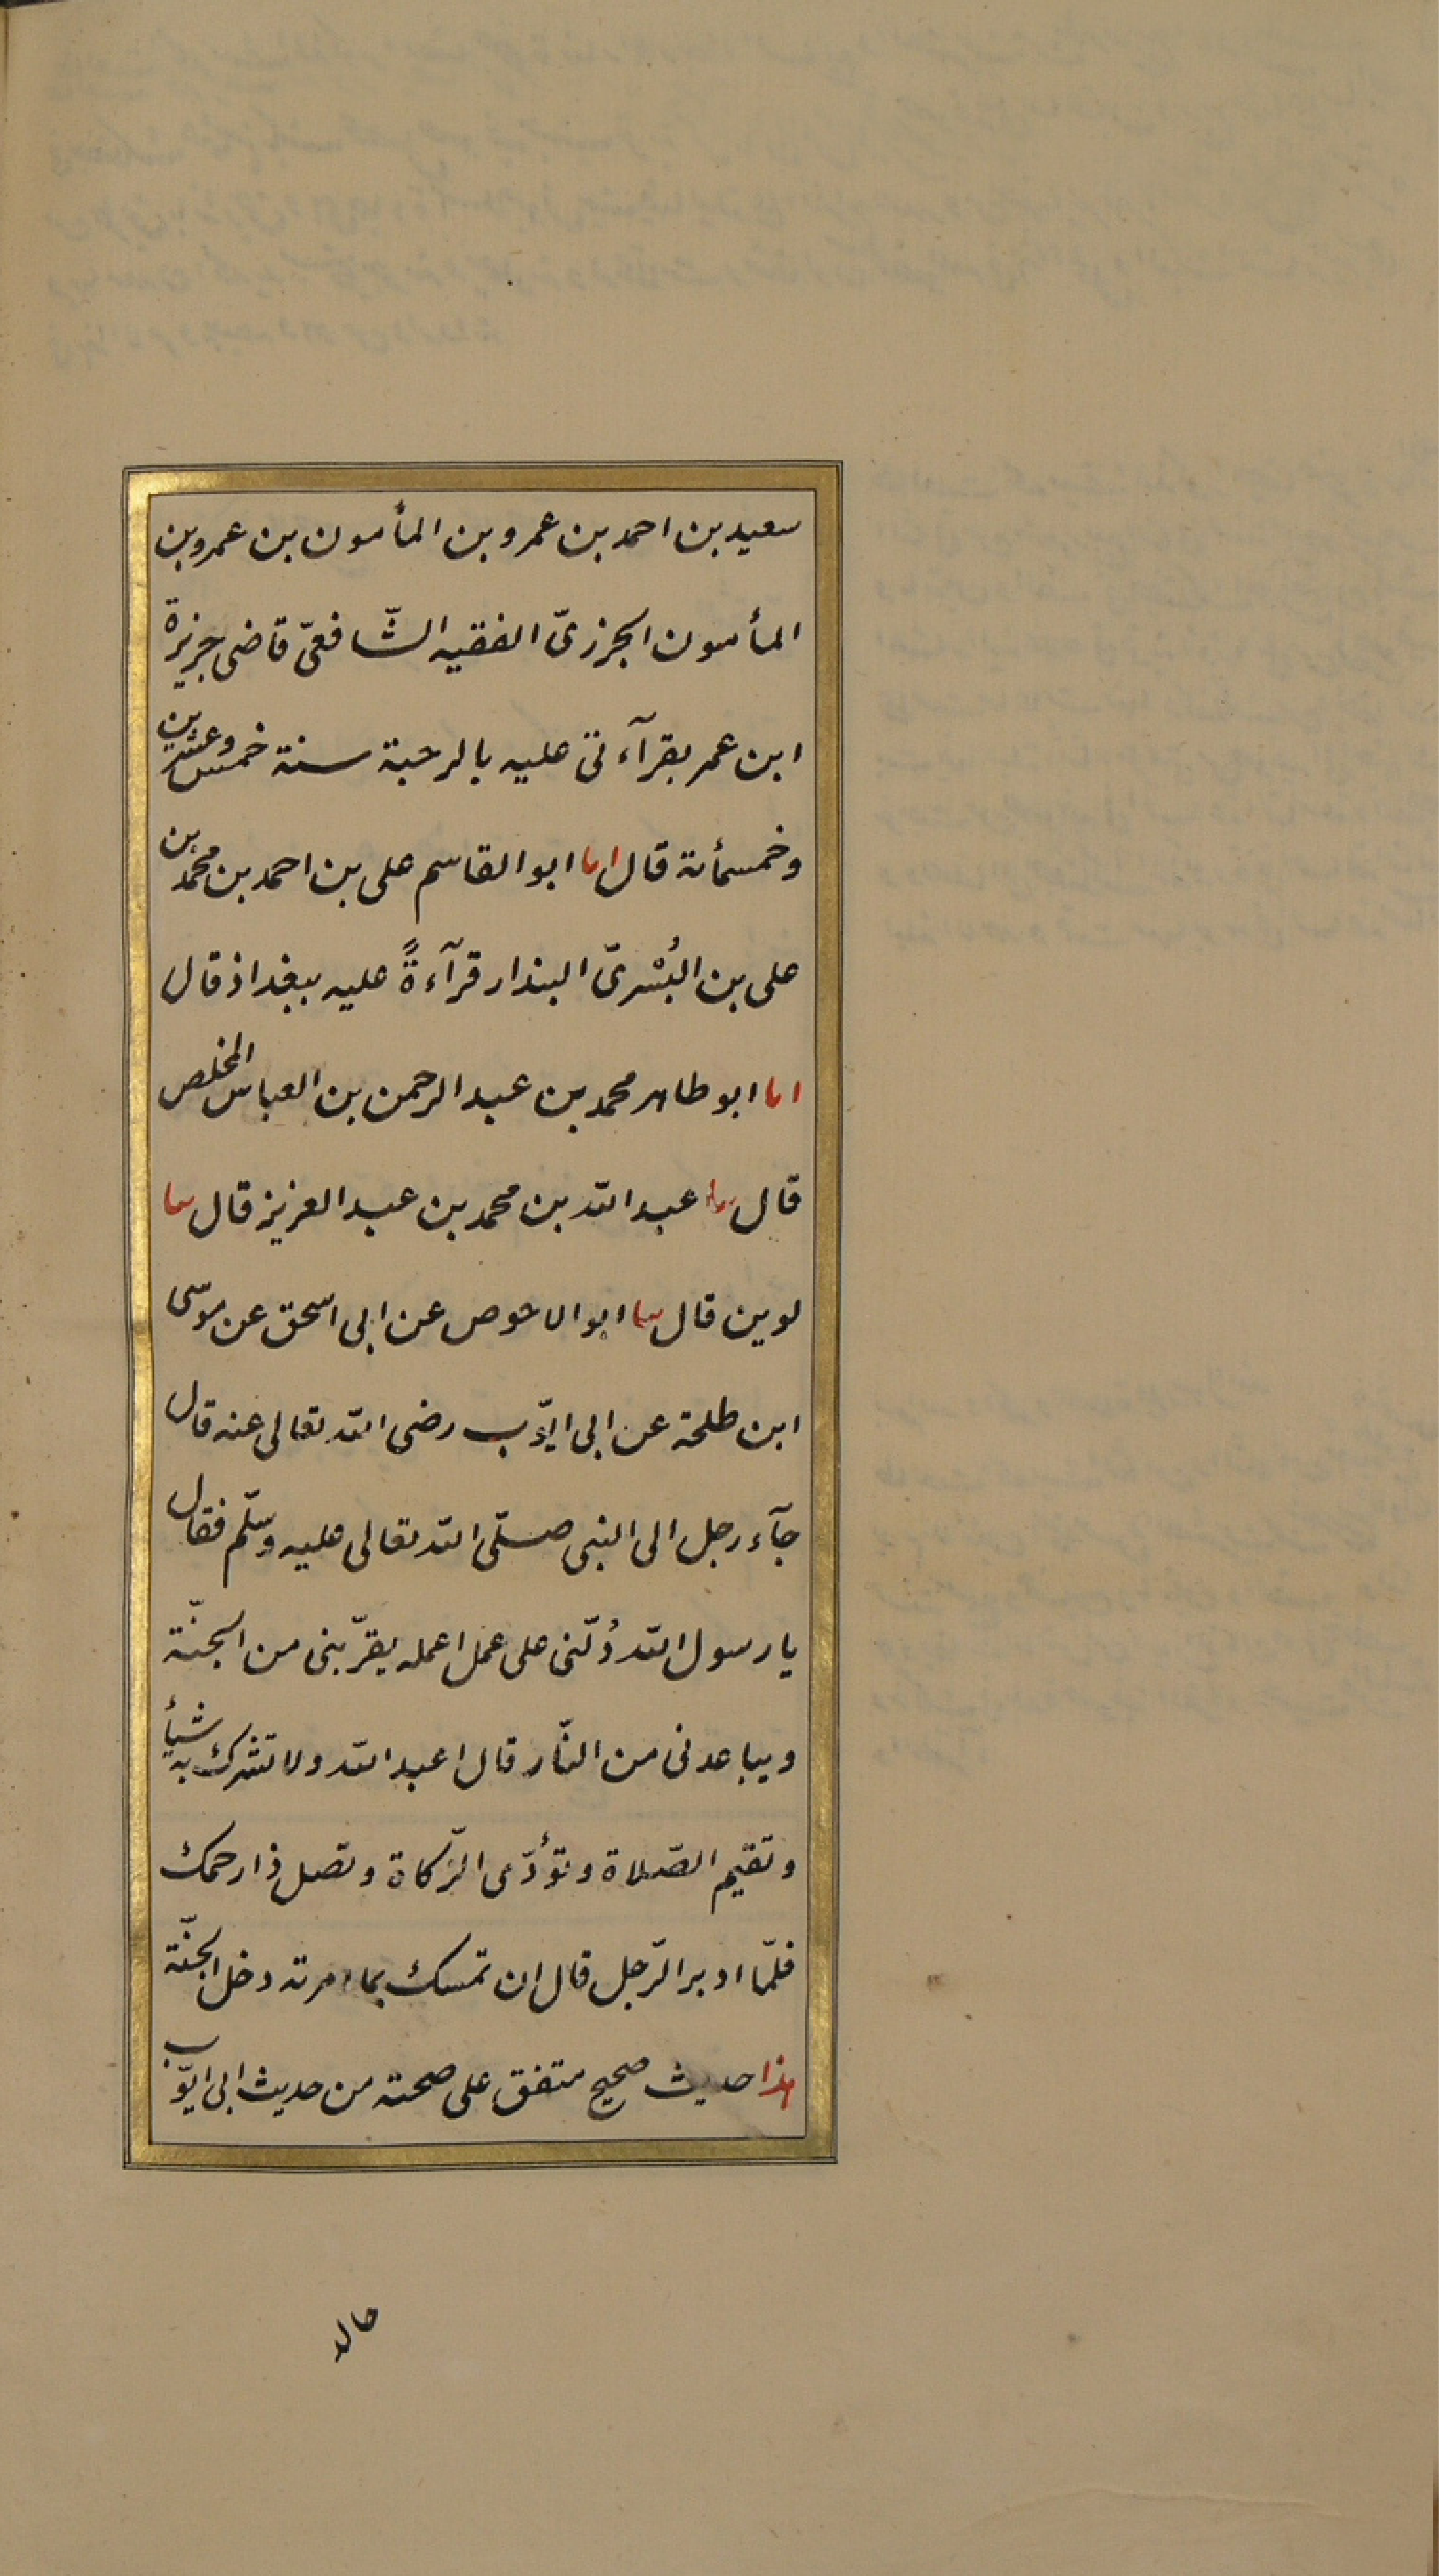 سعيد بن احمد بن عمرو بن المأمون بن عمرو بن
المأمون الجزرىّ الفقيه الشّافعىّ قاضى جزيرة
ابن عمر بقرآءتى عليه بالرحبة سنة خمس وعشرين
وخمسمأئة قال انا ابو القاسم على بن احمد بن محمّد بن
على بن البُسْرىّ البندار قرآءةً عليه ببغداذ قال
انا ابو طاهر محمد بن عبد الرحمن بن العباس المخلص
قال ثنا عبد الله بن محمد بن عبد العزيز قال ثنا
لوين قال ثنا ابو الاحوص عن ابى اسحق عن موسى
ابن طلحة عن ابى ايّوب رضى الله تعالى عنه قال
جآء رجل الى النبى صلّى الله تعالى عليه وسلّم فقال
يا رسول الله دُلّنى على عمل اعمله يقرّبنى من الجنّة
ويباعدنى من النّار قال اعبد الله ولا تشرك به شيأ
وتقيم الصّلاة وتؤدّى الزّكاة وتصل ذا رحمك
فلمّا ادبر الرّجل قال ان تمسك بما امرته دخل الجنّة
هذا حديث صحيح متفق على صحته من حديث ابى ايّوب